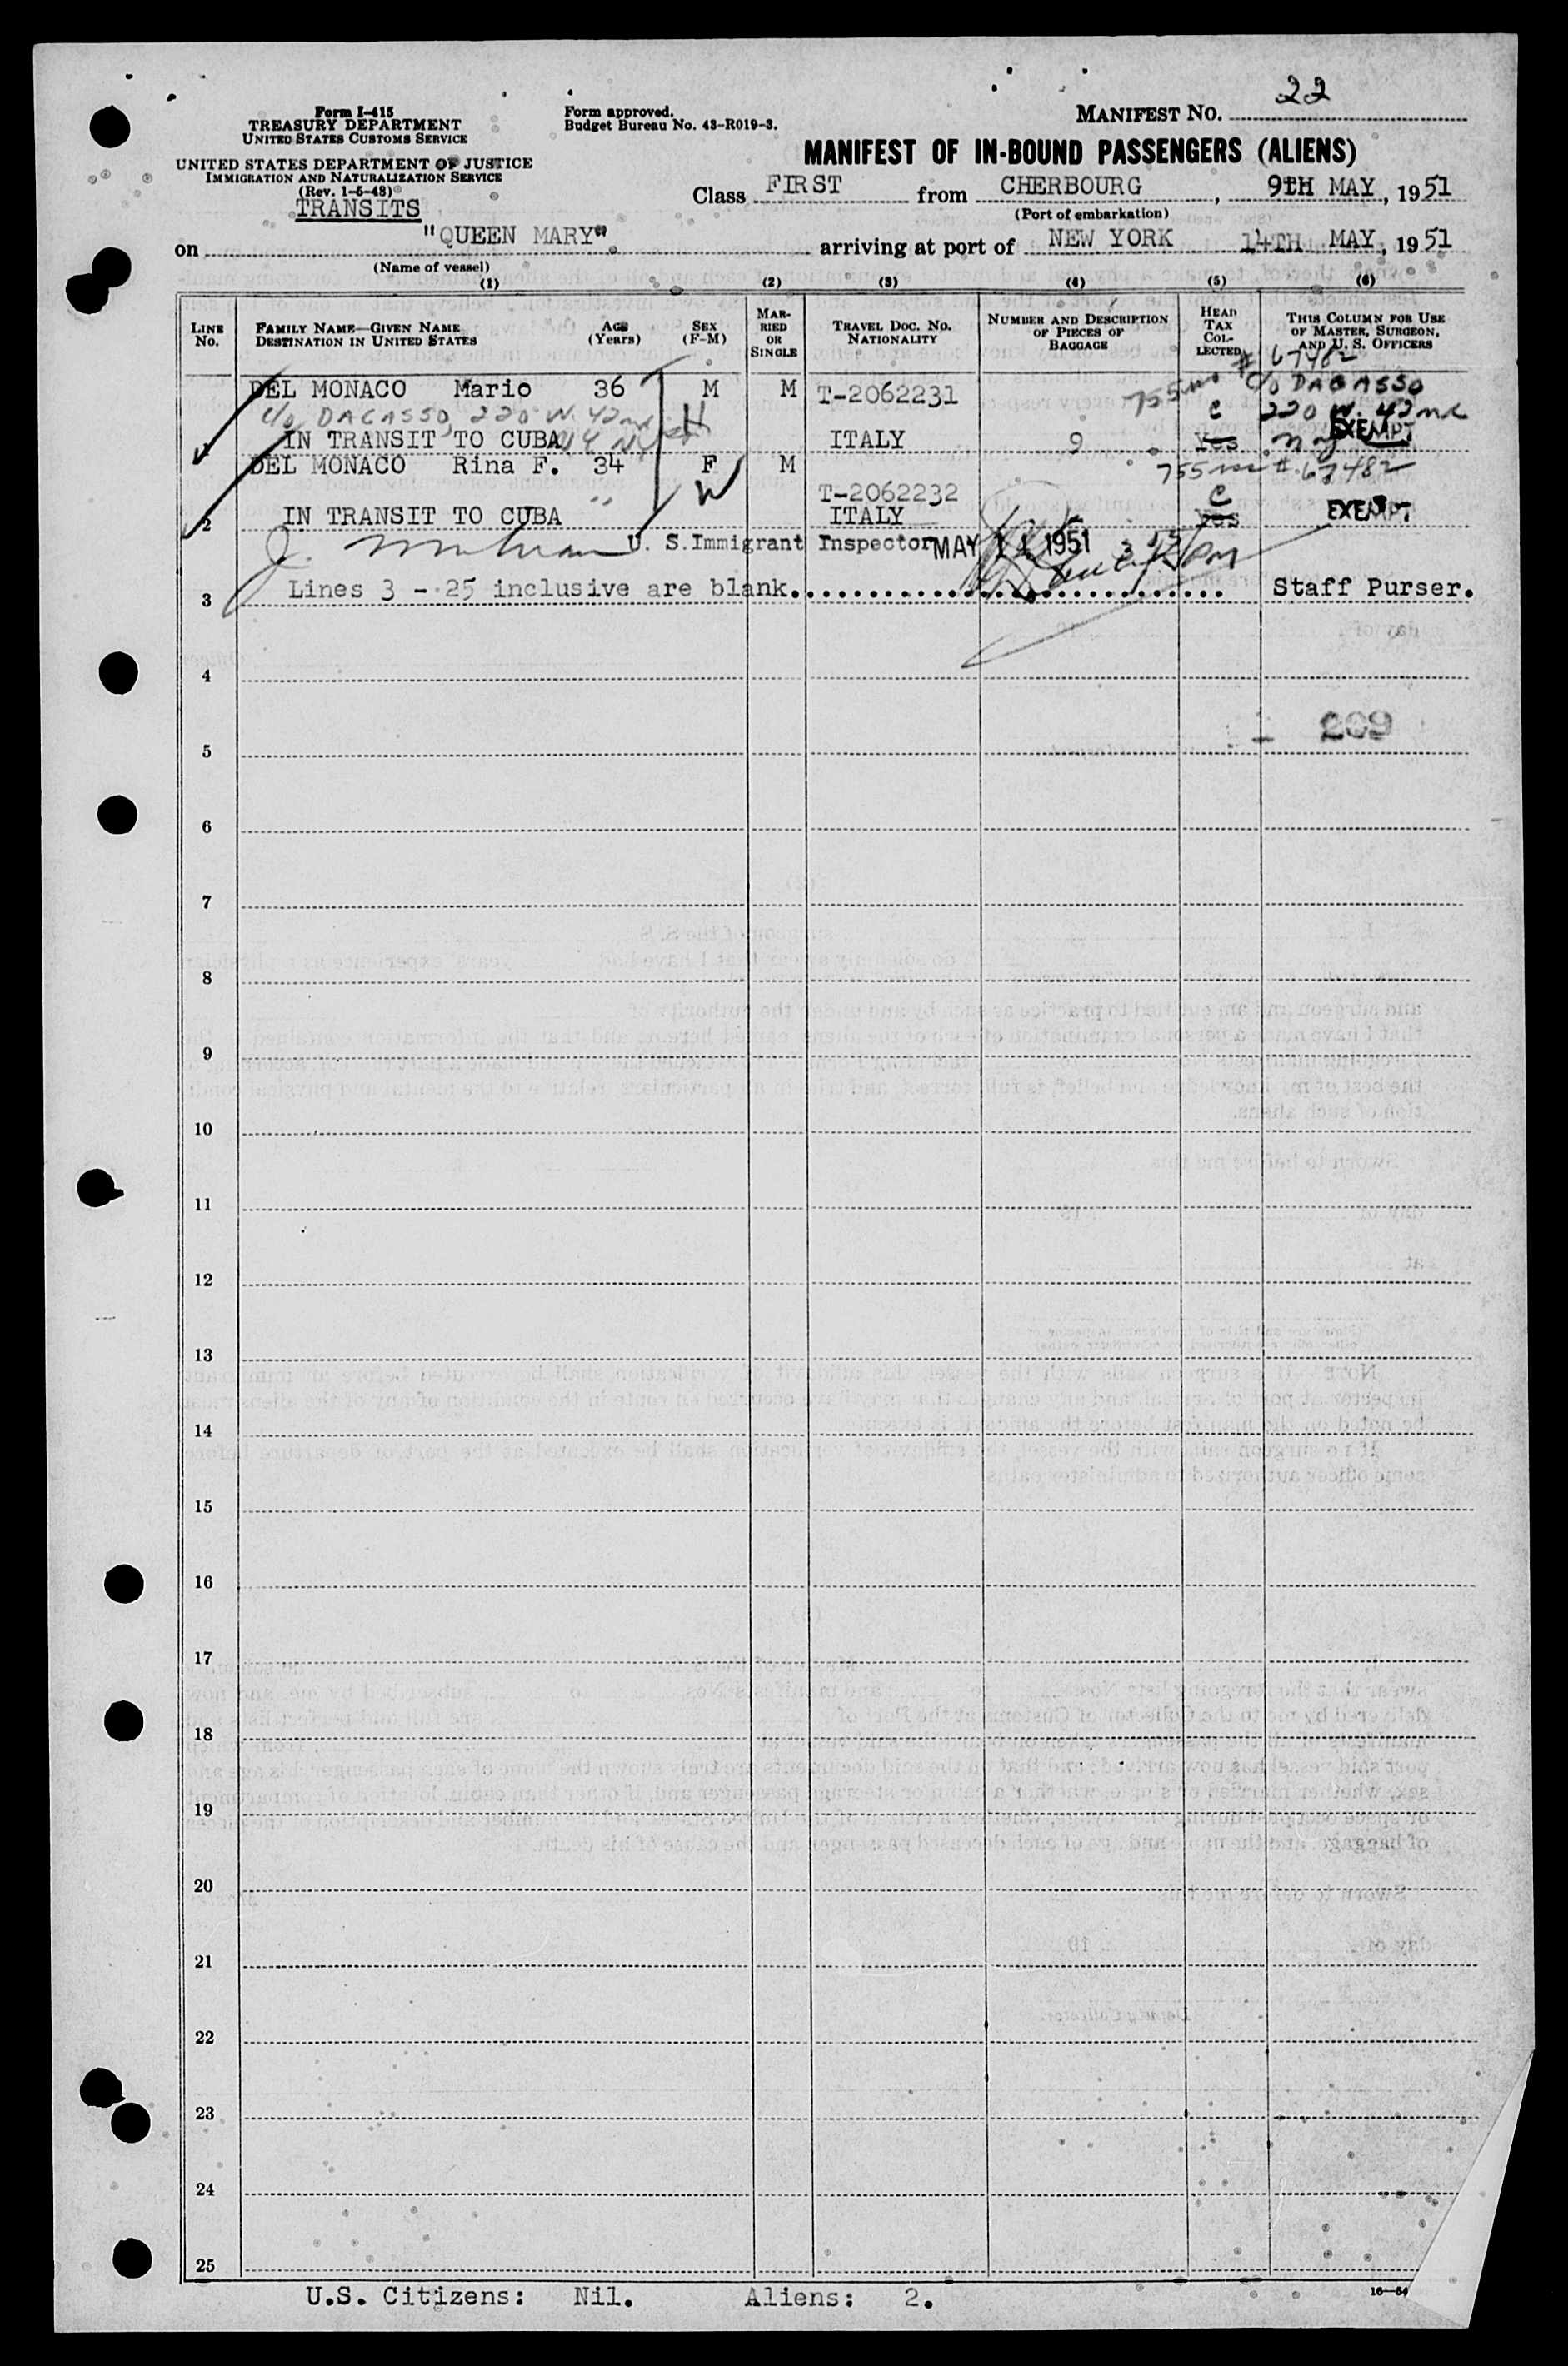 22
Form I-415
TREASURY DEPARTMENT
UNITED STATES CUSTOMS SERVICE
Form approved.
Budget Bureau No. 43-R019-3.
MANIFEST NO.
UNITED STATES DEPARTMENT OF JUSTICE
IMMIGRATION AND NATURALIZATION SERVICE
(Rev. 1-5-48)
TRANSITS
MANIFEST OF IN-BOUND PASSENGERS (ALIENS)
Class FIRST from CHERBOURG, 9TH MAY, 1951
(Port of embarkation)
on "QUEEN MARY" arriving at port of NEW YORK 14TH MAY, 1951
(Name of vessel)
(1) (2) (3) (4) (5) (6)
LINE No.
FAMILY NAME—GIVEN NAME
DESTINATION IN UNITED STATES
AGE (Years)
SEX (F-M)
MARRIED OR SINGLE
TRAVEL DOC. NO.
NATIONALITY
NUMBER AND DESCRIPTION OF PIECES OF BAGGAGE
HEAD TAX COLLECTED
THIS COLUMN FOR USE OF MASTER, SURGEON, AND U. S. OFFICERS
# 67482
DEL MONACO Mario 36 M M T-2062231 C/O DAGASSO
C/O DAGASSO, 220 W. 42nd H C 220 W. 42nd
1 IN TRANSIT TO CUBA ITALY 9 Yes EXEMPT
DEL MONACO Rina F. 34 F M # 67482
W T-2062232 C
2 IN TRANSIT TO CUBA ITALY Yes EXEMPT
U. S. Immigrant Inspector MAY 14 1951
3 Lines 3 - 25 inclusive are blank. Staff Purser.
4
209
5
6
7
8
9
10
11
12
13
14
15
16
17
18
19
20
21
22
23
24
25
U.S. Citizens: Nil. Aliens: 2.